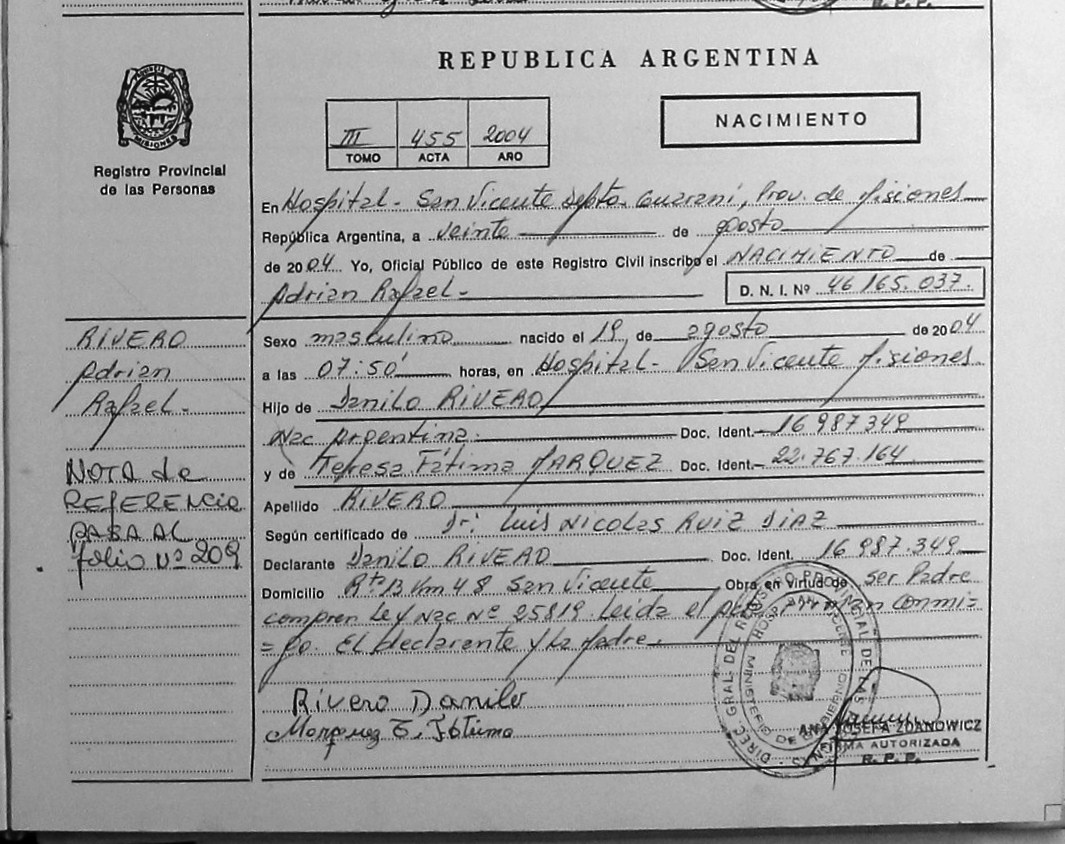 R. P. P.
REPUBLICA ARGENTINA
MISIONES
Registro Provincial
de las Personas
III 455 2004
TOMO ACTA AÑO
NACIMIENTO
En Hospital - San Vicente Depto. Guaraní, Prov. de Misiones
República Argentina, a veinte de agosto
de 2004 Yo, Oficial Público de este Registro Civil inscribo el NACIMIENTO de
Adrian Rafael -
D. N. I. Nº 46 165.037.
RIVERO
Adrian
Rafael -
Sexo masculino nacido el 19 de agosto de 2004
a las 07:50' horas, en Hospital - San Vicente Misiones
Hijo de Danilo RIVERO
Nac Argentina. Doc. Ident. 16 987 349
y de Teresa Fátima MARQUEZ Doc. Ident. 22.767.164
Apellido RIVERO
Según certificado de Dr. Luis Nicolas RUIZ DIAZ
Declarante Danilo RIVERO Doc. Ident. 16 987.349
Domicilio Rta 13 Km 48 San Vicente Obra en virtud de ser Padre
NOTA de
REFERENCIA
PASA AL
folio Nº 209
Ley Nac Nº 25819. Leida el conmi=
=go. El declarante y la Madre.
Rivero Danilo
Marquez T. Fátima
DIREC. GRAL. DEL REGISTRO PROVINCIAL DE LAS
MINISTERIO DE GOBIERNO
ANA JOSEFA ZDANOWICZ
FIRMA AUTORIZADA
R. P. P.